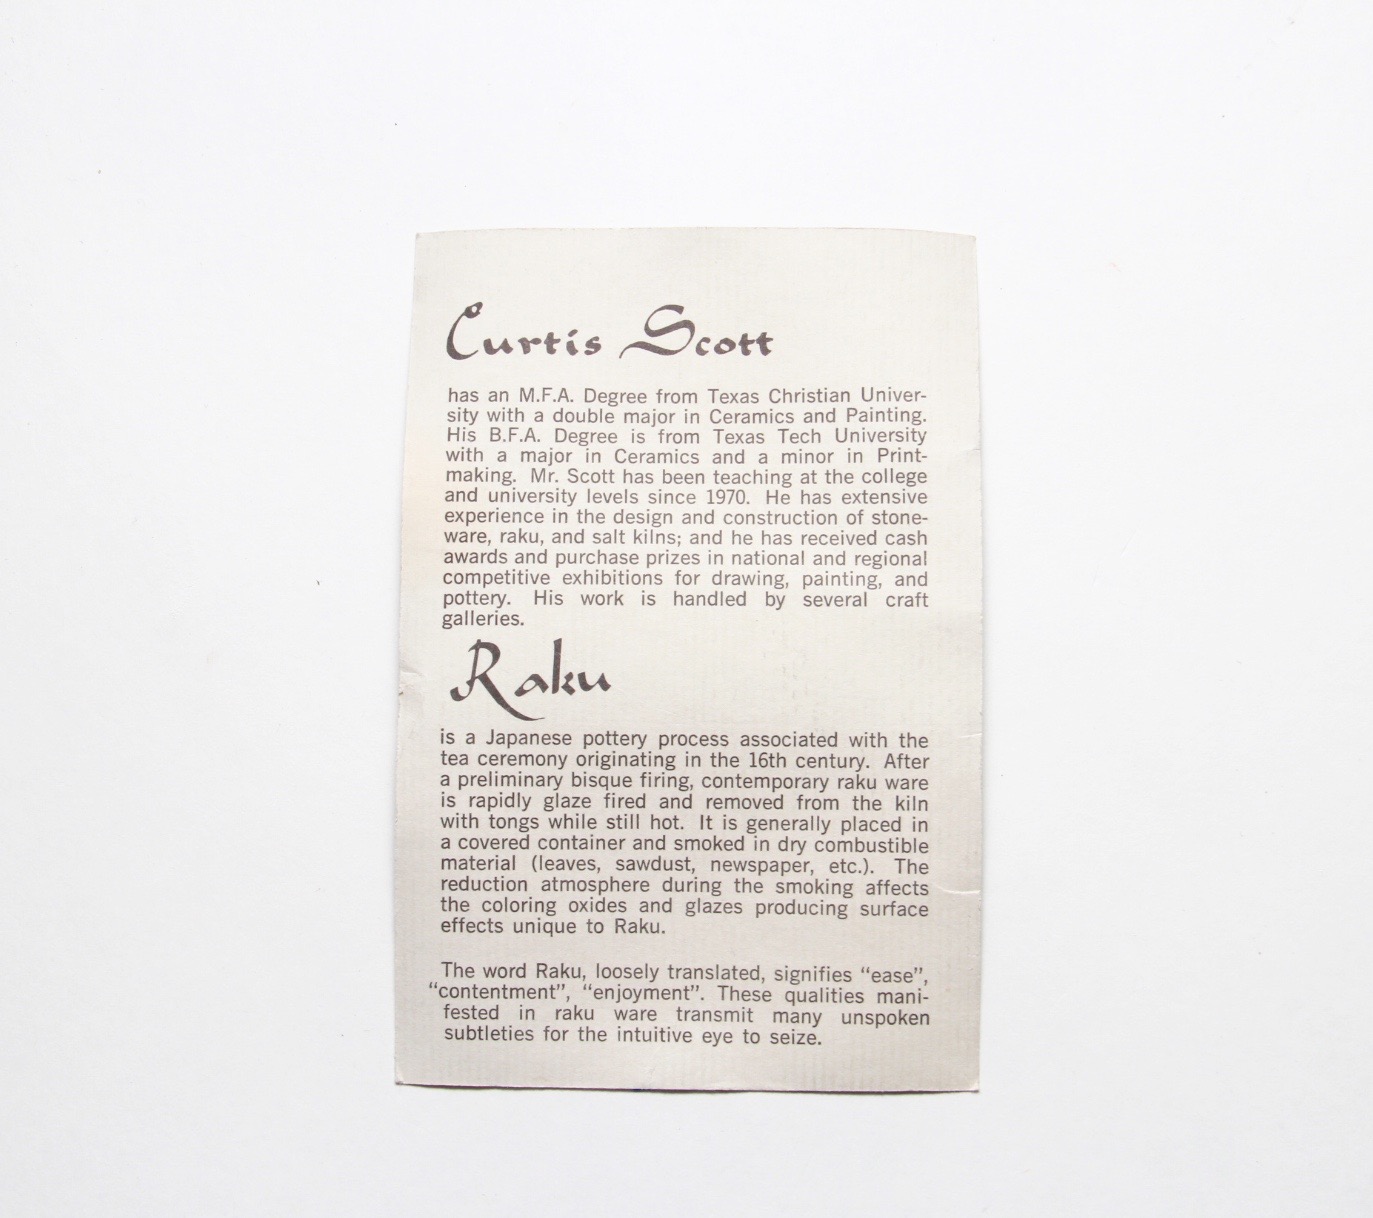 Curtis Scott
has an M.F.A. Degree from Texas Christian Univer-
sity with a double major in Ceramics and Painting.
His B.F.A. Degree is from Texas Tech University
with a major in Ceramics and a minor in Print-
making. Mr. Scott has been teaching at the college
and university levels since 1970. He has extensive
experience in the design and construction of stone-
ware, raku, and salt kilns; and he has received cash
awards and purchase prizes in national and regional
competitive exhibitions for drawing, painting, and
pottery. His work is handled by several craft
galleries.
Raku
is a Japanese pottery process associated with the
tea ceremony originating in the 16th century. After
a preliminary bisque firing, contemporary raku ware
is rapidly glaze fired and removed from the kiln
with tongs while still hot. It is generally placed in
a covered container and smoked in dry combustible
material (leaves, sawdust, newspaper, etc.). The
reduction atmosphere during the smoking affects
the coloring oxides and glazes producing surface
effects unique to Raku.
The word Raku, loosely translated, signifies “ease”,
“contentment”, “enjoyment”. These qualities mani-
fested in raku ware transmit many unspoken
subtleties for the intuitive eye to seize.